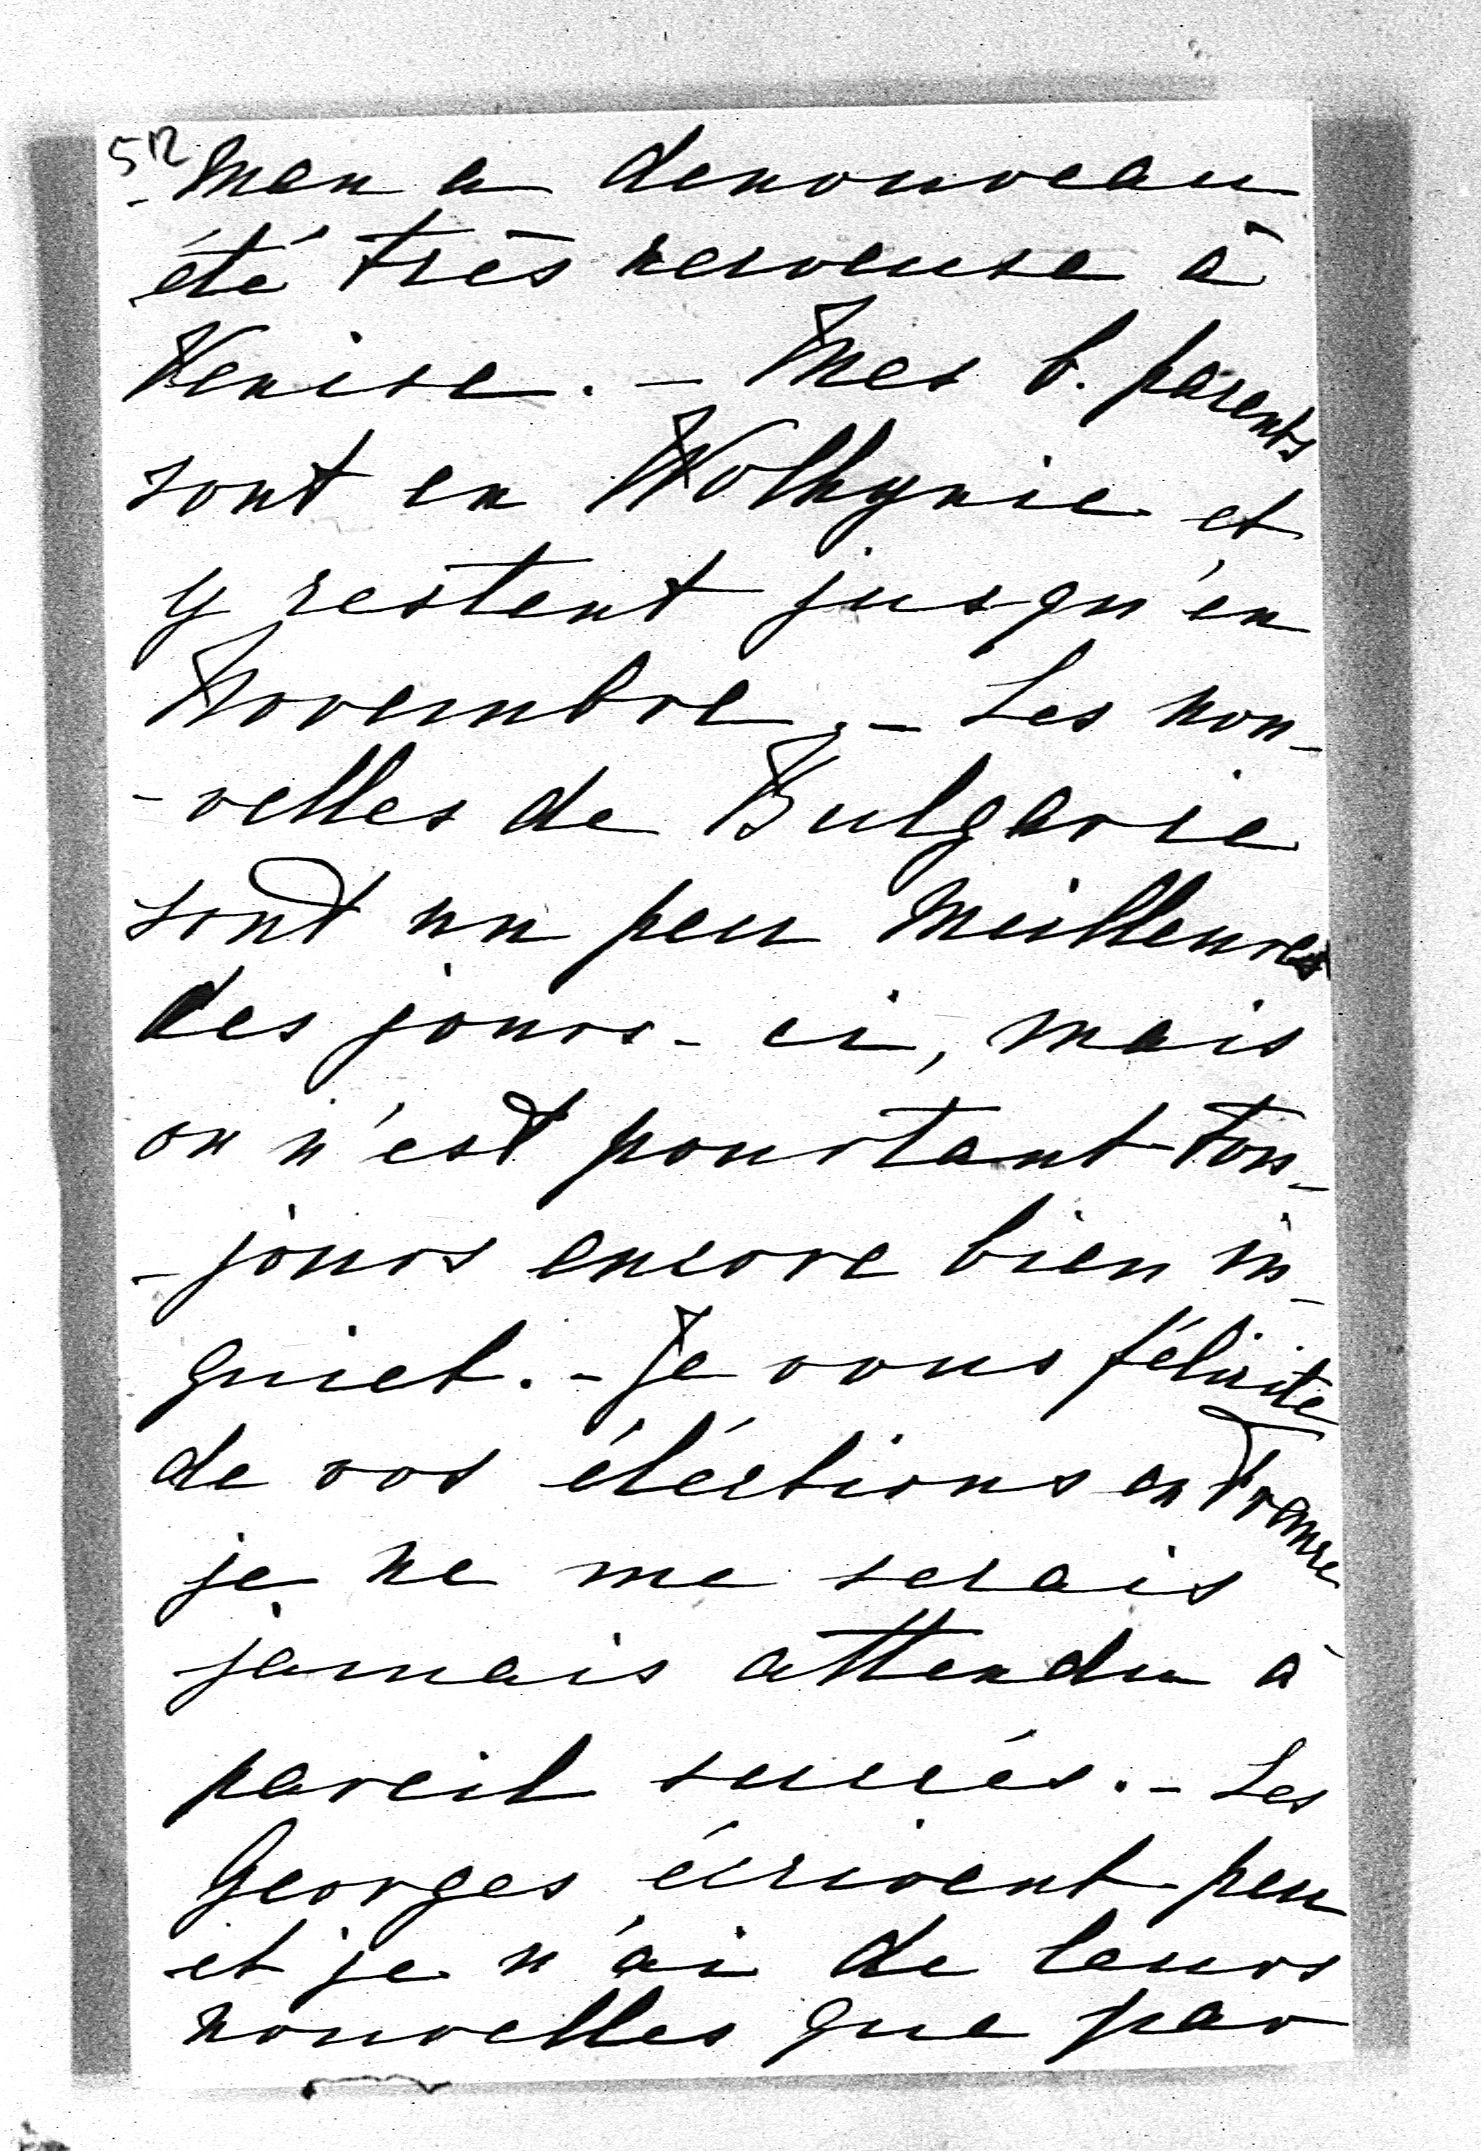 512
- Man a denouveau
été très nerveuse à
Venise. - Mes b. parents
sont en Wolhynie et
y restent jusqu'en
Novembre. - Les nou-
- velles de Bulgarie
sont un peu meilleures
des jours-ci, mais
on n'est pourtant tou-
- jours encore bien in-
quiet. - Je vous félicite
de vos éléctions en France
je ne me serais
jamais attendu à
pareil succés. - Les
Georges écrivent peu
et je n'ai de leurs
nouvelles que par